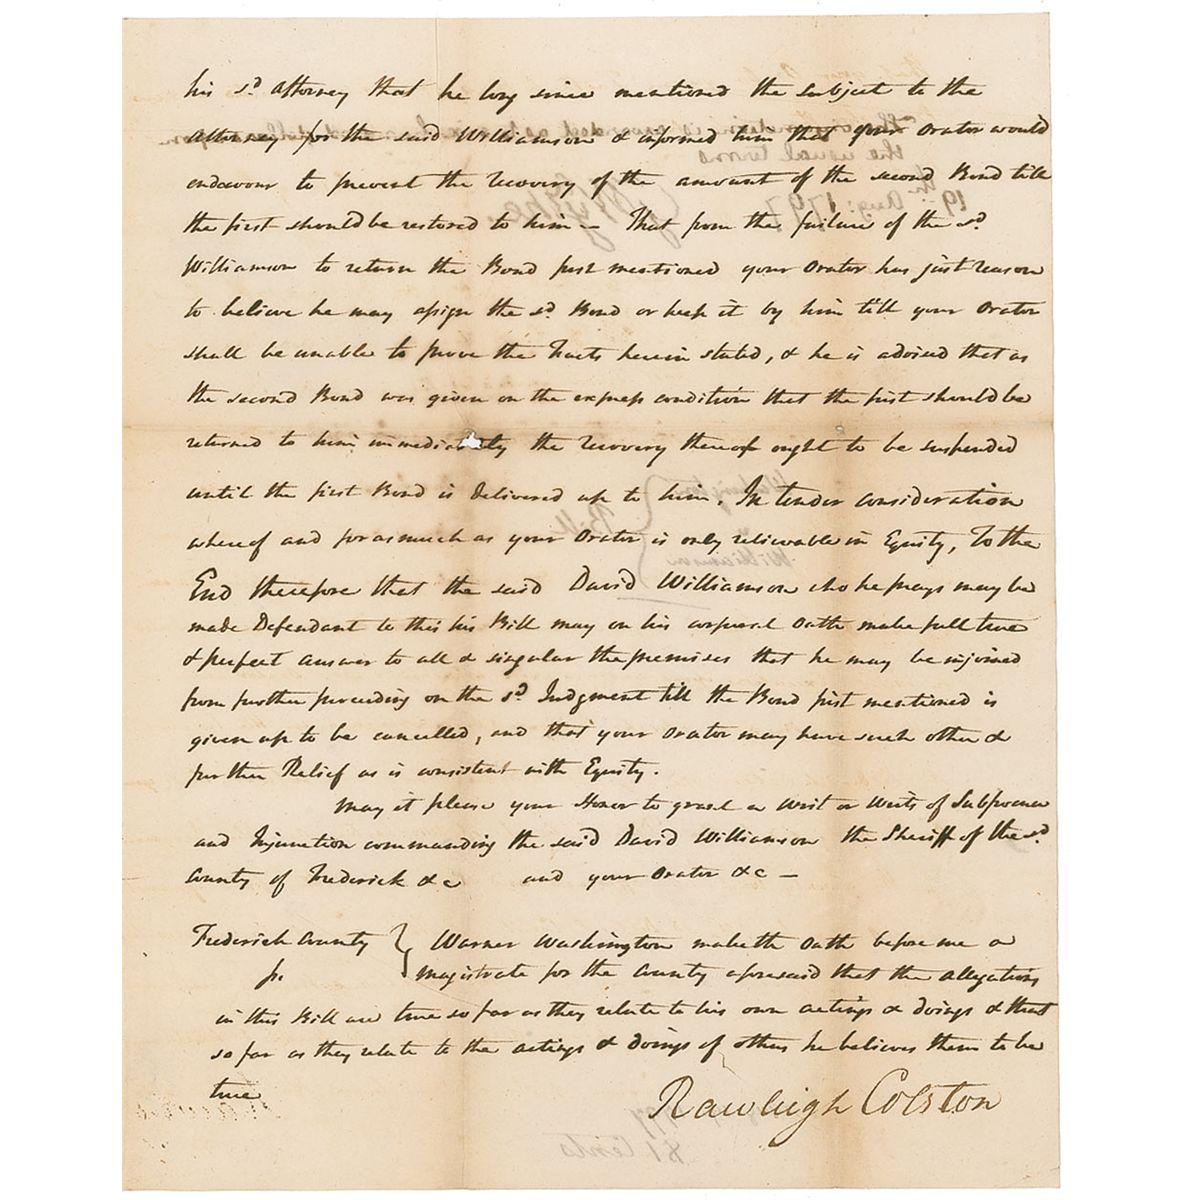 his sd. Attorney that he long since mentioned the subject to the
Attorney for the said Williamson & informed him that your Orator would
endeavour to prevent the recovery of the amount of the second Bond till
the first should be restored to him — That from the failure of the sd.
Williamson to return the Bond first mentioned your Orator has just reason
to believe he may assign the sd. Bond or keep it by him till your Orator
shall be unable to prove the Facts herein stated, & he is advised that as
the second Bond was given on the express condition that the first should be
returned to him immediately the recovery thereof ought to be suspended
until the first Bond is delivered up to him. In tender consideration
whereof and for as much as your Orator is only relievable in Equity, To the
End therefore that the said David Williamson who he prays may be
made Defendant to this his Bill may on his corporal Oath make full true
& perfect answer to all & singular the premises that he may be injoined
from further proceeding on the sd. Judgment till the Bond first mentioned is
given up to be cancelled, and that your Orator may have such other &
further Relief as is consistent with Equity.
May it please your Honor to grant a Writ or Writs of Subpoena
and Injunction commanding the said David Williamson the Sheriff of the sd.
County of Frederick &c and your Orator &c —
Frederick County } Warner Washington maketh Oath before me a
magistrate for the County aforesaid that the allegations
in this Bill are true so far as they relate to his own actings & doings & that
so far as they relate to the actings & doings of others he believes them to be
true
Rawleigh Colston
the usual terms
19th. Aug: 1797.
Washington
Bill
Williamson
81 Cents